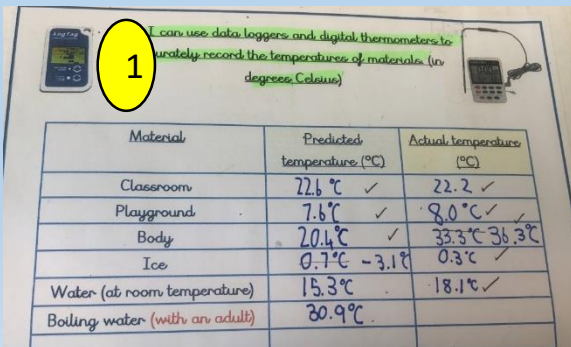 LogTag
1
I can use data loggers and digital thermometers to
urately record the temperatures of materials (in
degrees Celsius)
Material Predicted temperature (°C) Actual temperature (°C)
Classroom 22.6°C ✓ 22.2 ✓
Playground 7.6°C ✓ 8.0°C ✓
Body 20.4°C ✓ 33.3°C 36.3°C ✓
Ice 0.7°C -3.1°C 0.3°C ✓
Water (at room temperature) 15.3°C 18.1°C ✓
Boiling water (with an adult) 30.9°C